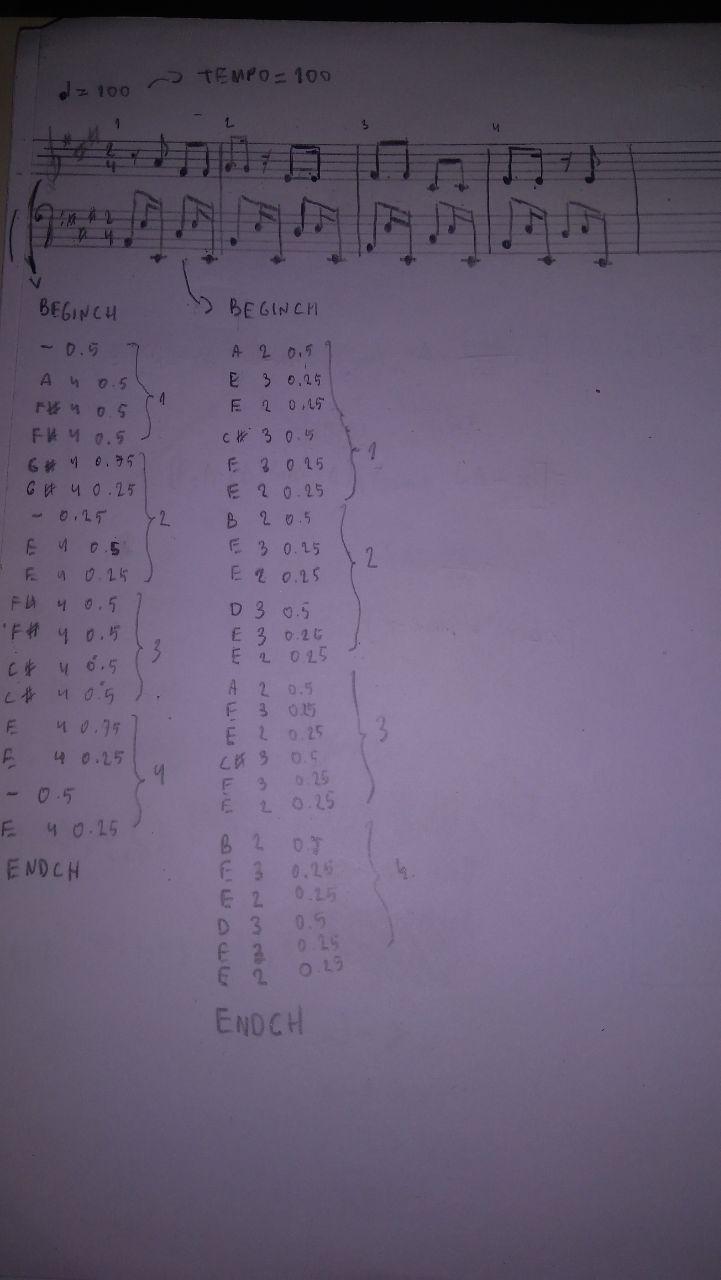 ♩ = 100 → TEMPO = 100
1 2 3 4
2 4
2 4
BEGINCH
- 0.5
A 4 0.5
F# 4 0.5
F# 4 0.5
1
G# 4 0.75
G# 4 0.25
- 0.25
E 4 0.5
E 4 0.25
2
F# 4 0.5
F# 4 0.5
C# 4 0.5
C# 4 0.5
3
E 4 0.75
E 4 0.25
- 0.5
E 4 0.25
4
ENDCH
BEGINCH
A 2 0.5
E 3 0.25
E 2 0.25
C# 3 0.5
E 3 0.25
E 2 0.25
1
B 2 0.5
E 3 0.25
E 2 0.25
D 3 0.5
E 3 0.25
E 2 0.25
2
A 2 0.5
E 3 0.25
E 2 0.25
C# 3 0.5
E 3 0.25
E 2 0.25
3
B 2 0.5
E 3 0.25
E 2 0.25
D 3 0.5
E 3 0.25
E 2 0.25
4
ENDCH